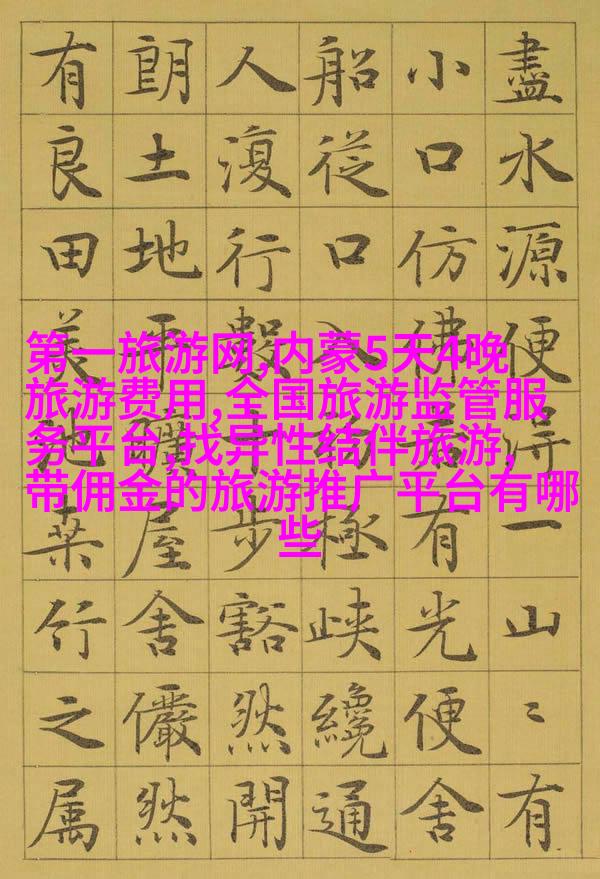 盡水源便得一山〻有
小口仿佛若有光便舍
船從口入初極峽纔通
人復行數十步豁然開
朗土地平曠屋舍儼然
有良田美池桑竹之属
第一旅游网,内蒙5天4晚
旅游费用,全国旅游监管服
务平台,找异性结伴旅游,
带佣金的旅游推广平台有哪
些